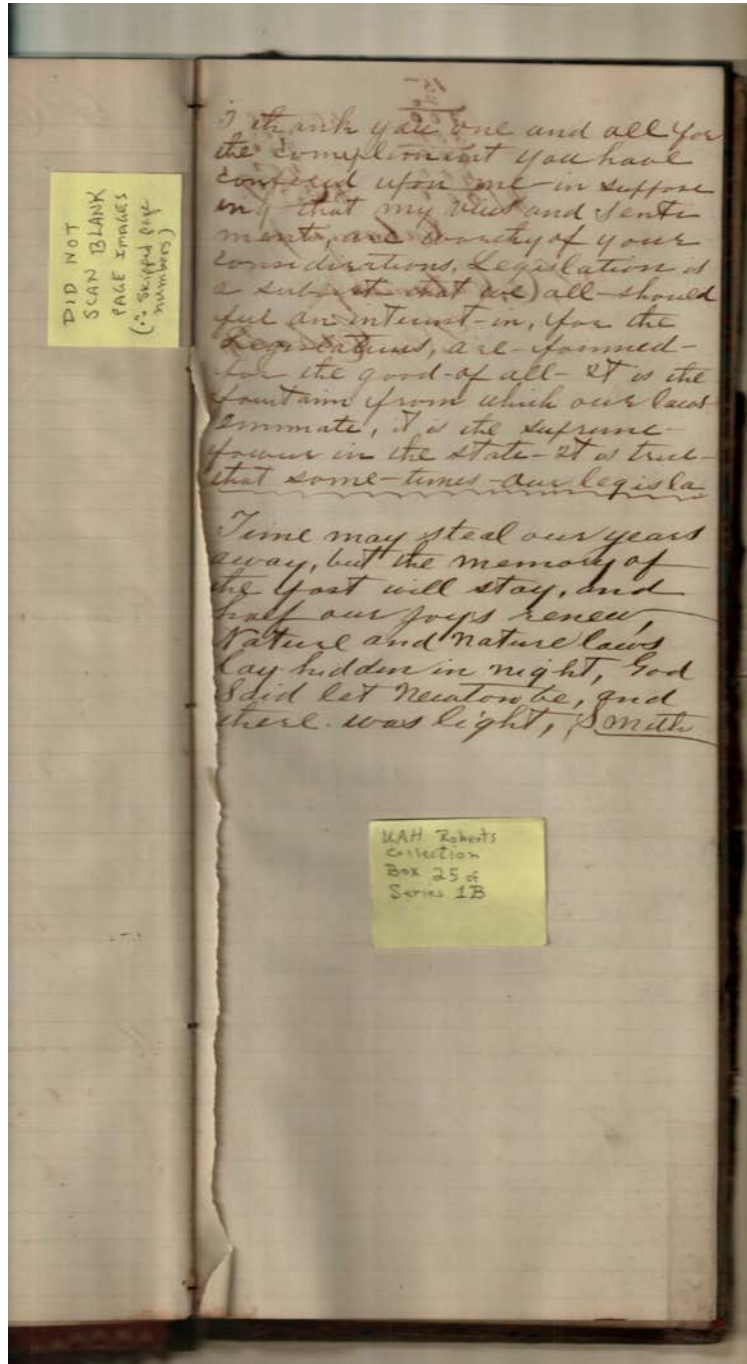 DID NOT
SCAN BLANK
PAGE IMAGES
(∴ skipped page
numbers)
I thank you one and all for
the complement you have
confered upon me in suppose
ing that my views and sente
ments, are worthy of your
considerations, Legislation is
a subject that we all should
feel an interest in, for the
Legislatures, are formed
for the good of all - It is the
fountain from which our laws
emmate, it is the supreme
power in the state - It is true
that some-times our legisla
Time may steal our years
away, but the memory of
the past will stay, and
half our joys renew,
Nature and nature laws
lay hidden in night, God
Said let Newton be, and
there was light, Smith
UAH Roberts
Collection
Box 25 of
Series 1B